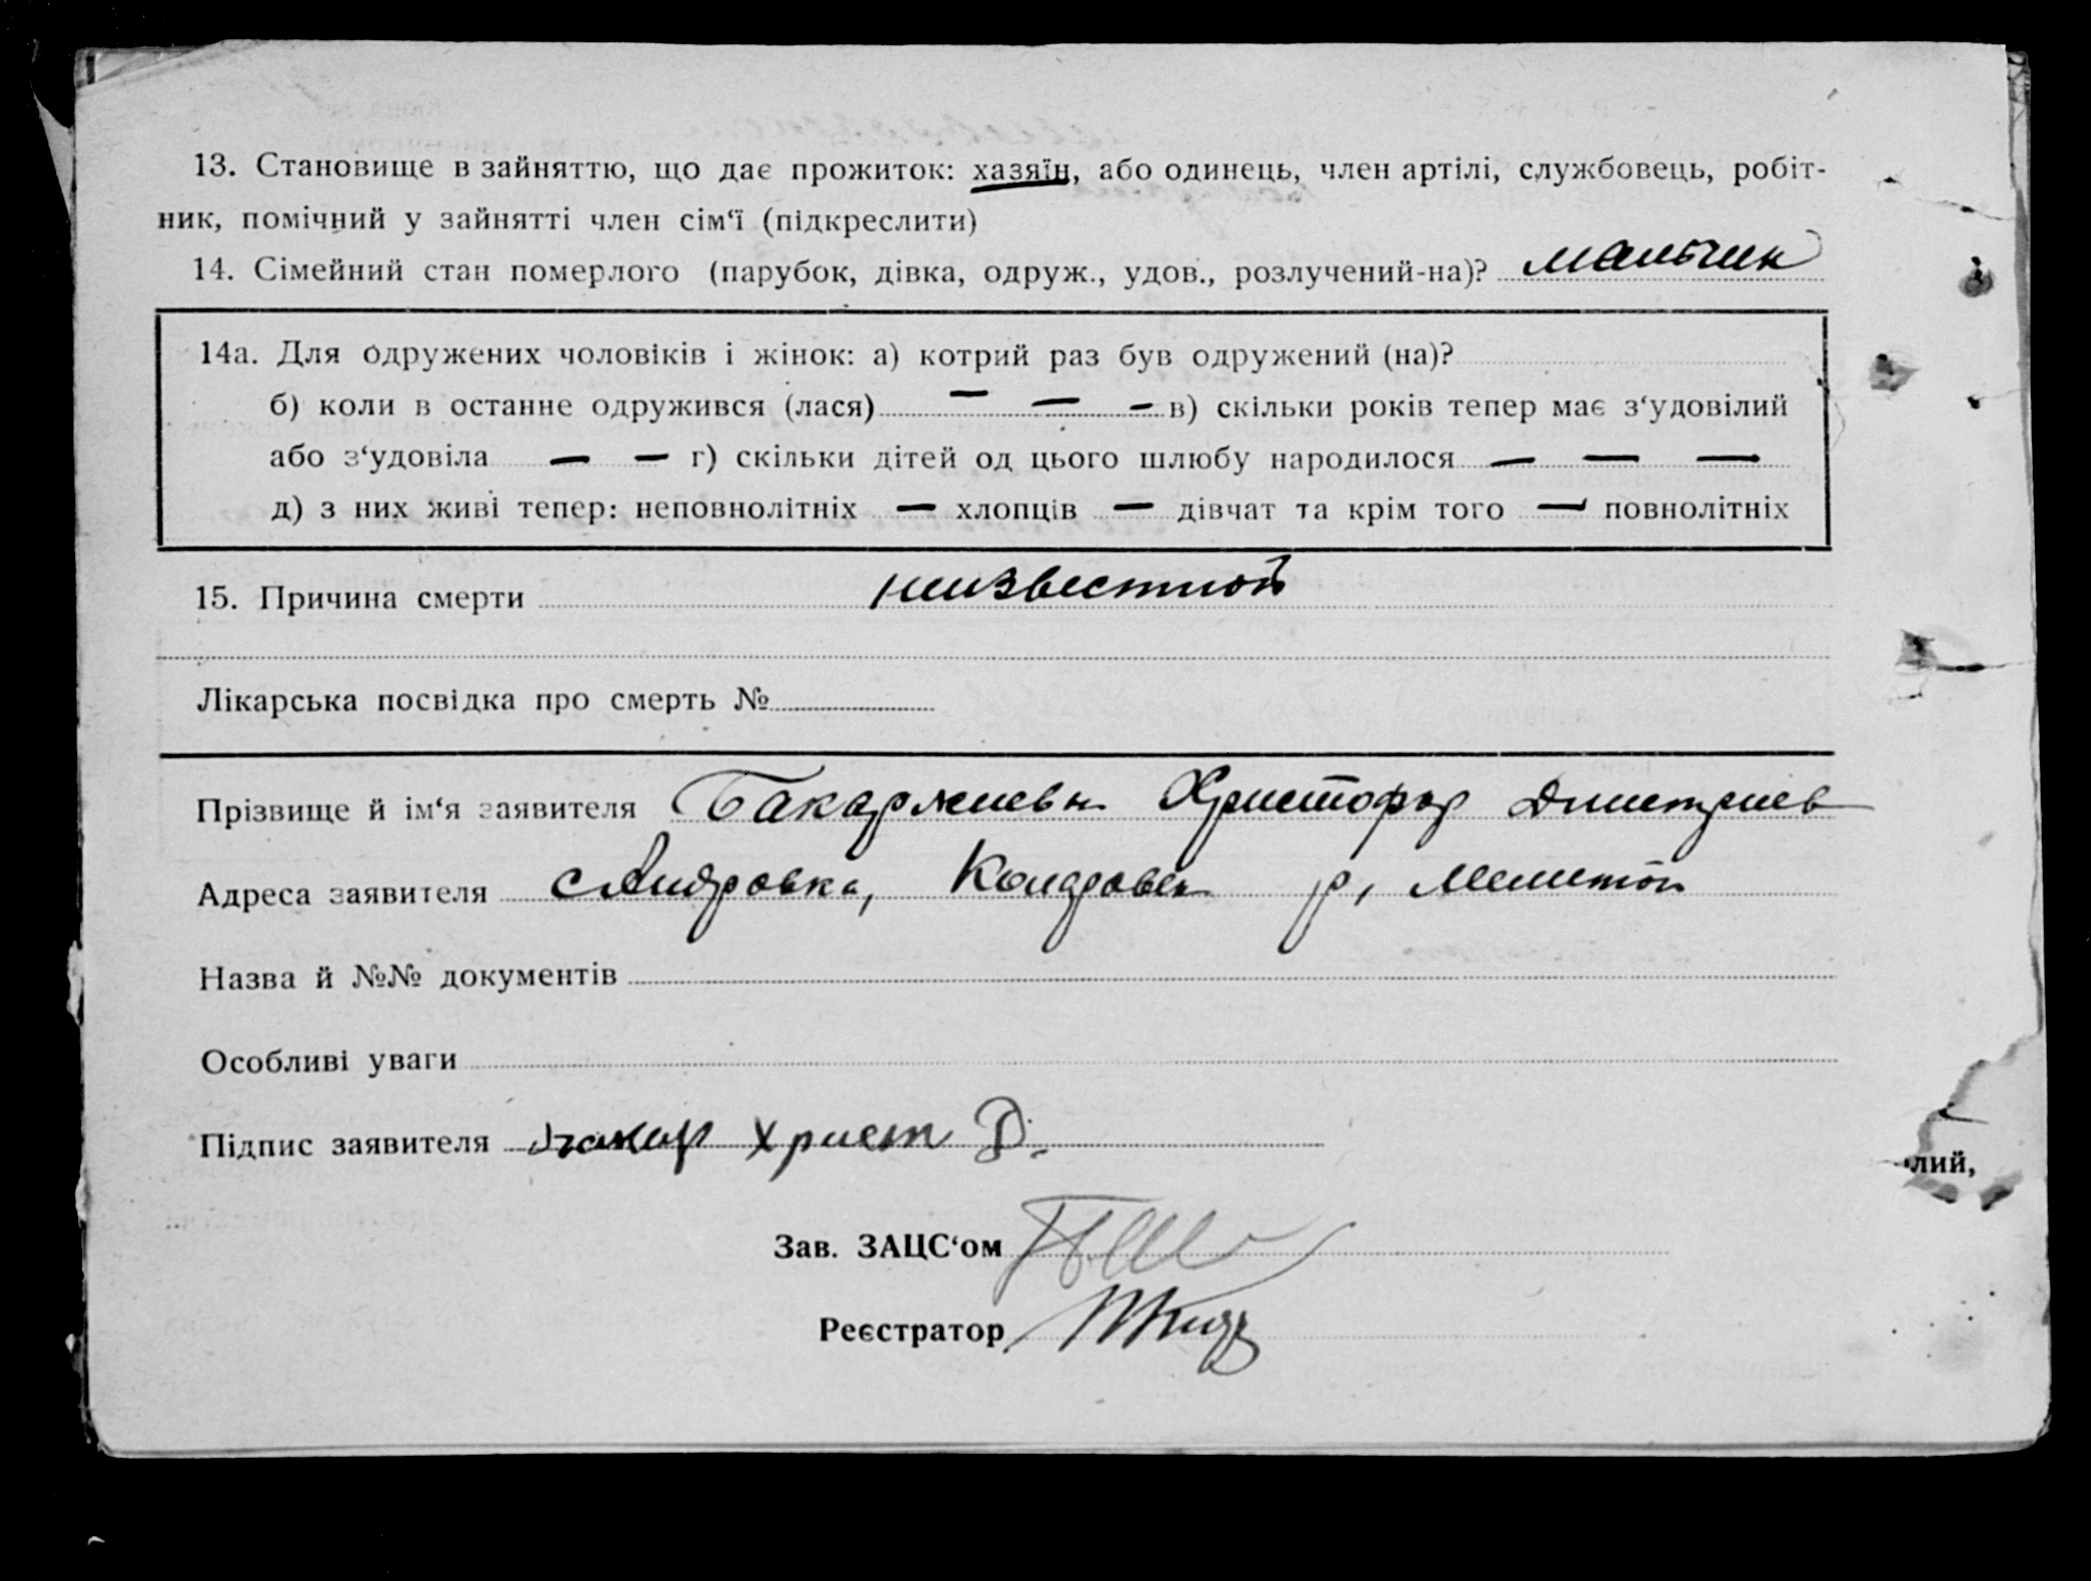 13. Становище в зайняттю, що дає прожиток: хазяїн, або одинець, член артілі, службовець, робіт-
ник, помічний у зайнятті член сім‘ї (підкреслити)
14. Сімейний стан померлого (парубок, дівка, одруж., удов., розлучений-на)? мальчик
14а. Для одружених чоловіків і жінок: а) котрий раз був одружений (на)?
б) коли в останне одружився (лася) — — — в) скільки років тепер має з‘удовілий
або з‘удовіла — — г) скільки дітей од цього шлюбу народилося — — —
д) з них живі тепер: неповнолітніх — хлопців — дівчат та крім того — повнолітніх
15. Причина смерти неизвестной
Лікарська посвідка про смерть №
Прізвище й ім‘я заявителя Христофор Дмитриев
Адреса заявителя р,
Назва й №№ документів
Особливі уваги
Підпис заявителя Христ Д.
Зав. ЗАЦС‘ом
лий,
Реєстратор